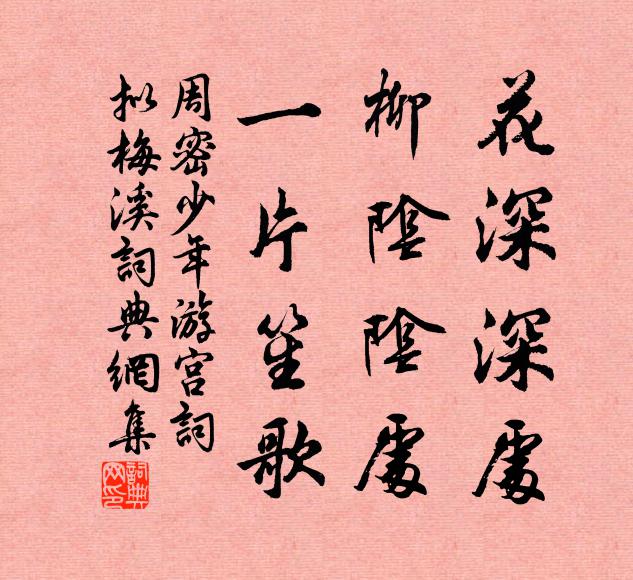 花深深處
柳陰陰處
一片笙歌
周密少年游宮詞
拟梅溪詞典網集
詞典
网印